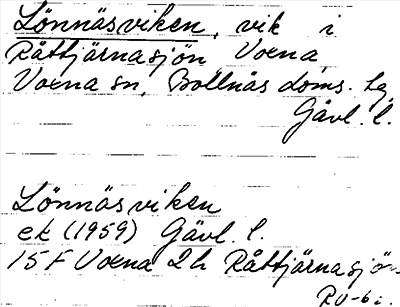 Lönnäsviken, vik i
Råttjärnasjön Voxna
Voxna sn, Bollnäs doms. hg
Gävl. l.
Lönnäsviken
ek (1959) Gävl. l.
15F Voxna 2h Råttjärnasjön
RU-6i.